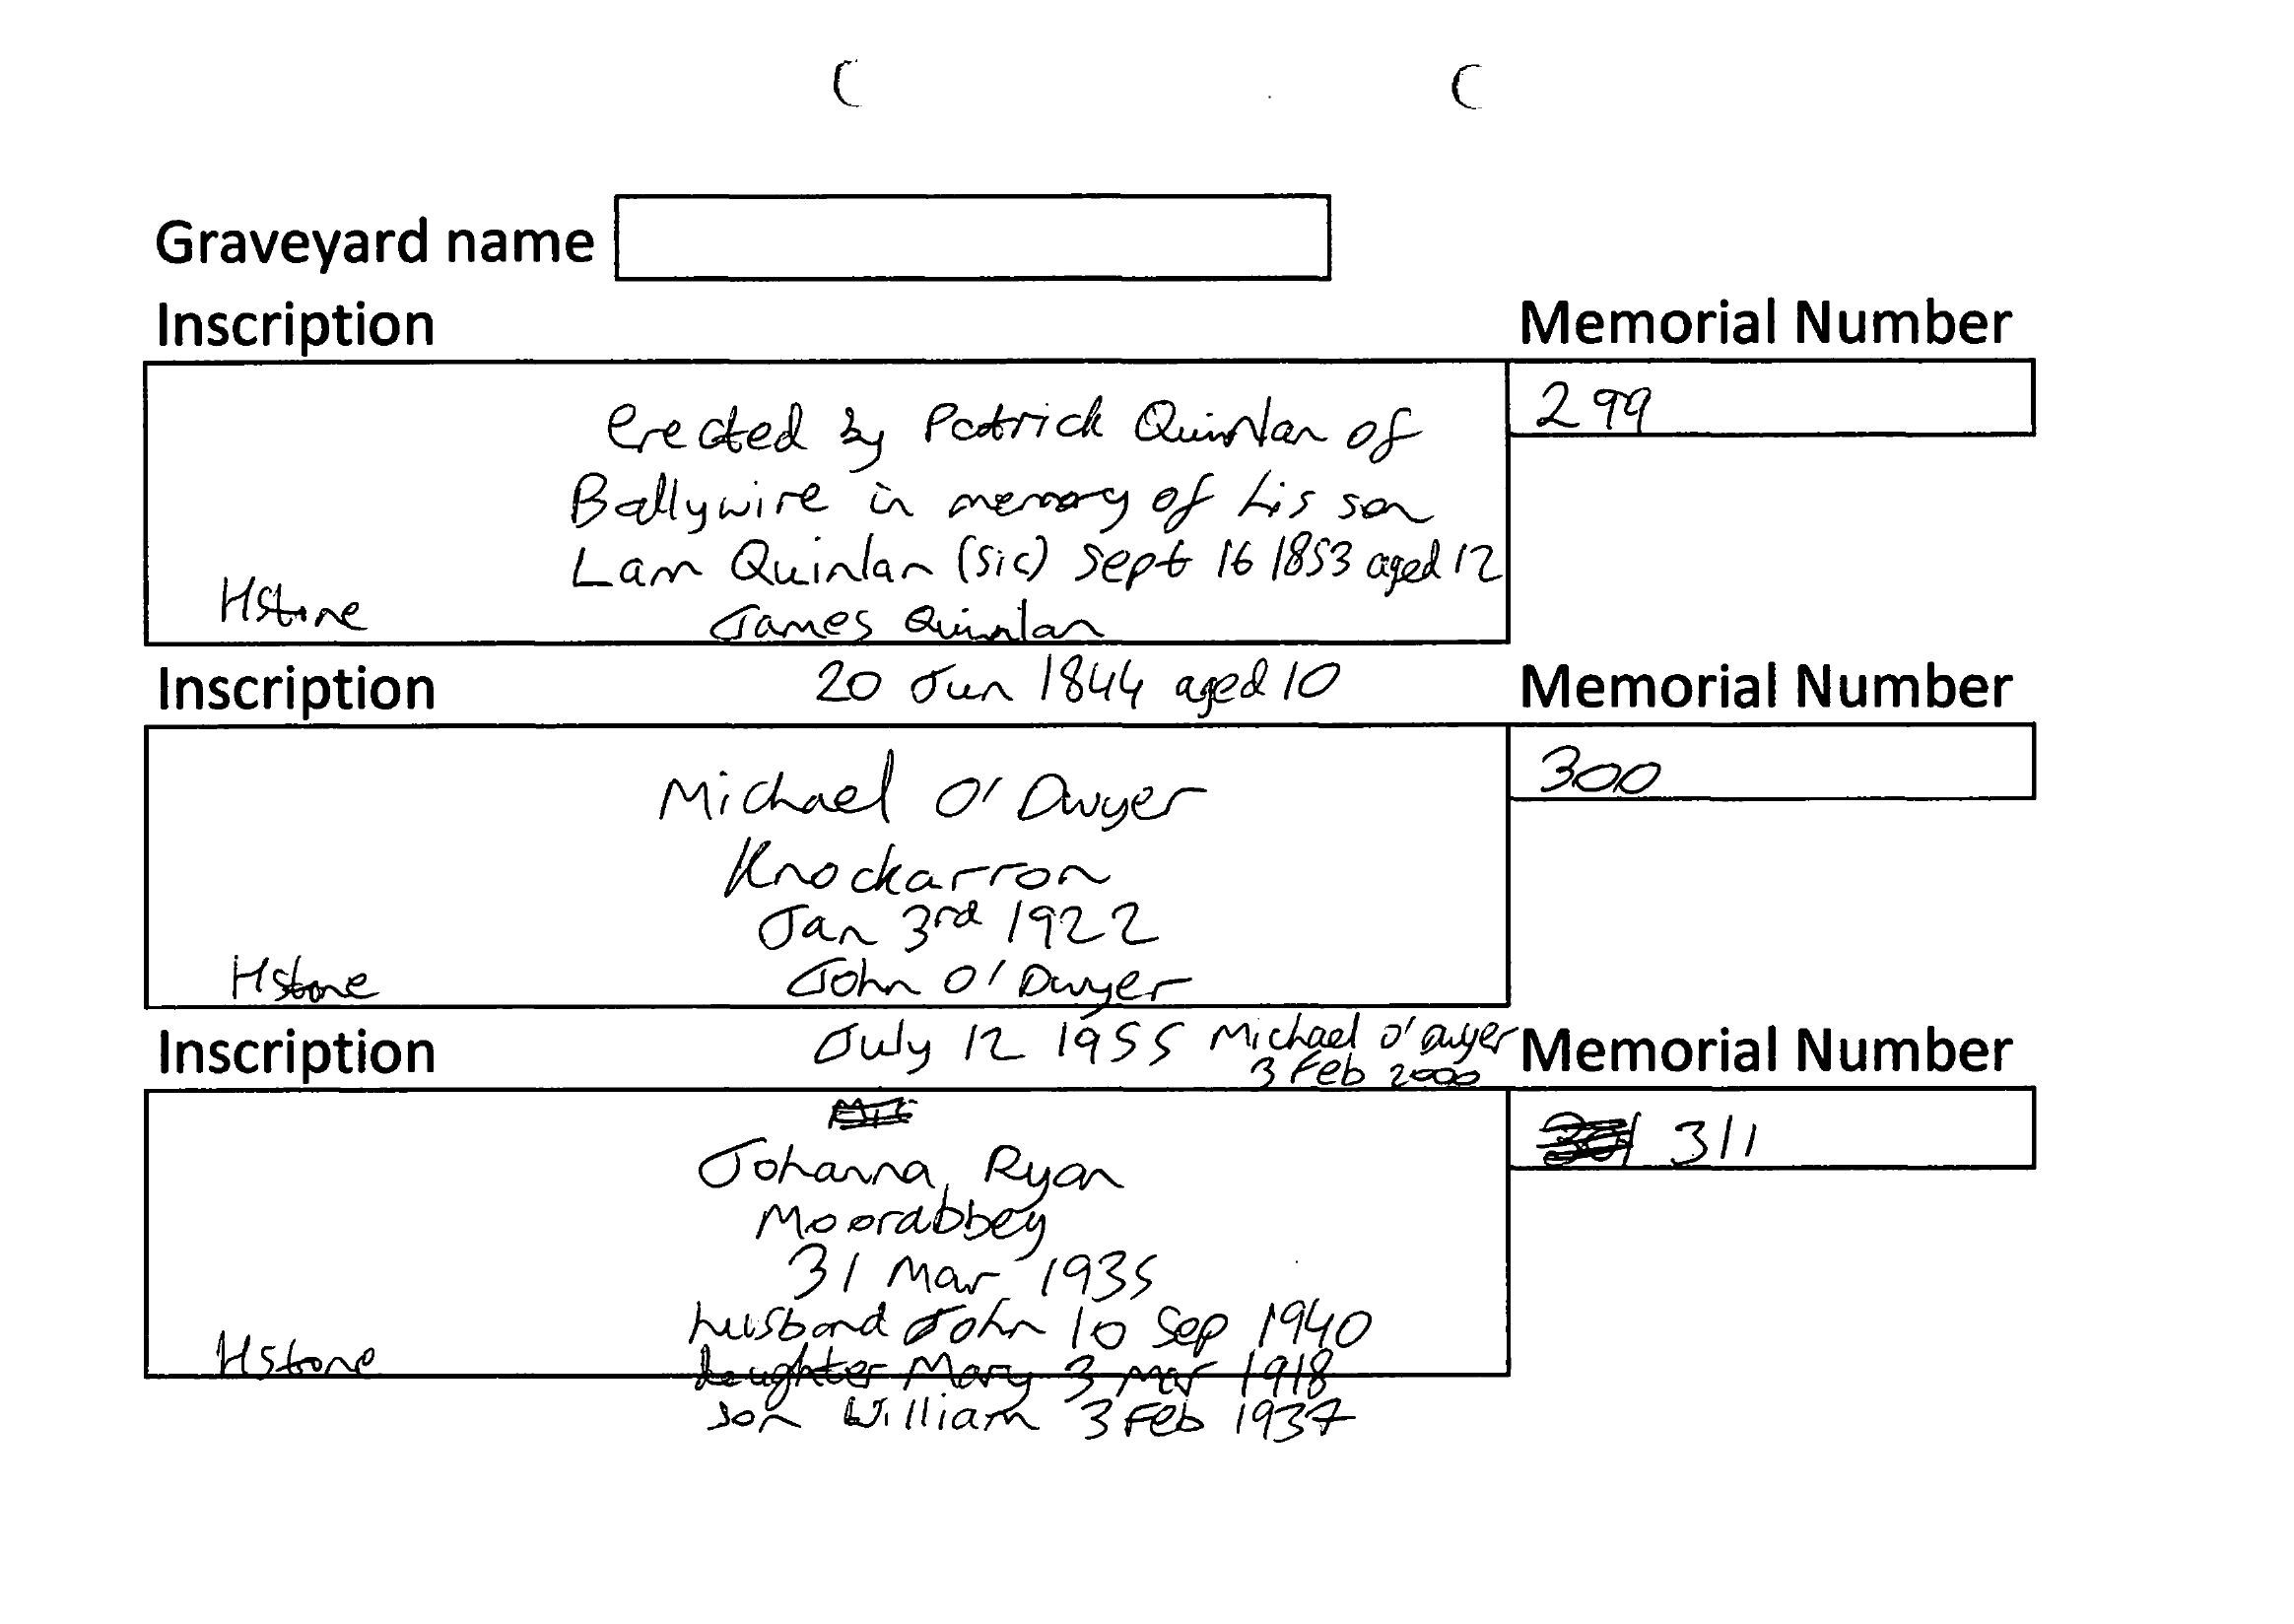 Graveyard name
Inscription
Memorial Number
299
Erected by Patrick Quinlan of
Ballywire in memory of his son
Lam Quinlan (sic) Sept 16 1853 aged 12
Hstone
James Quinlan
20 Jun 1844 aged 10
Inscription
Memorial Number
300
Michael O' Dwyer
Knockarron
Jan 3rd 1922
Hstone
John O' Dwyer
July 12 1955 Michael O' Dwyer
3 Feb 2000
Inscription
Memorial Number
311
Johanna Ryan
Moorabbey
31 Mar 1935
husband John 10 Sep 1940
Hstone
daughter Mary 3 Mar 1918
son William 3 Feb 1937